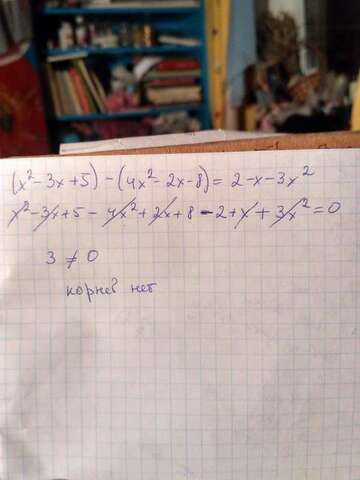 (x² - 3x + 5) - (4x² - 2x - 8) = 2 - x - 3x²
x² - 3x + 5 - 4x² + 2x + 8 - 2 + x + 3x² = 0
3 ≠ 0
корней нет